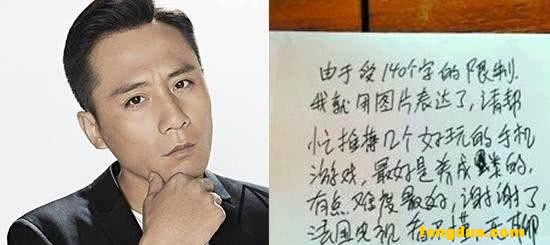 由于受140个字的限制.
我就用图片表达了,请帮
忙推荐几个好玩的手机
游戏,最好是养成类的.
有点难度最好,谢谢了,
法国电视
聊
fengdua.com